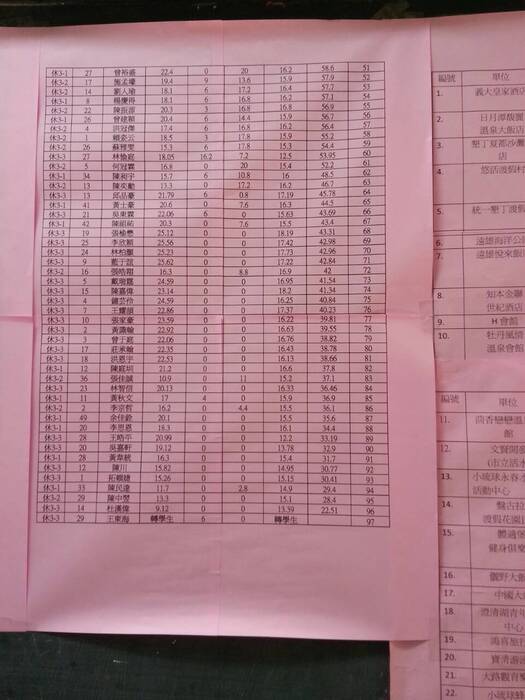 休3-1 27 曾裕盛 22.4 0 20 16.2 58.6 51
休3-2 17 施孟壕 19.4 9 13.6 15.9 57.9 52
休3-2 14 劉人瑜 18.1 6 17.2 16.4 57.7 53
休3-1 8 楊慶得 18.1 6 16.8 16.2 57.1 54
休3-2 22 陳振源 20.3 3 16.8 16.8 56.9 55
休3-1 26 曾建穎 20.4 6 14.4 15.9 56.7 56
休3-2 4 洪冠傑 17.4 6 16.8 16.2 56.4 57
休3-2 1 賴姿云 18.5 3 17.8 15.9 55.2 58
休3-2 26 蘇雅雯 15.3 6 17.8 15.3 54.4 59
休3-3 27 林愉庭 18.05 16.2 7.2 12.5 53.95 60
休3-2 5 何冠霖 16.8 0 20 15.4 52.2 61
休3-1 34 陳昶宇 15.7 6 10.8 16 48.5 62
休3-2 13 陳奕勳 13.3 0 17.2 16.2 46.7 63
休3-3 13 邱品豪 21.79 6 0.8 17.19 45.78 64
休3-1 41 黃士豪 20.6 0 7.6 16.3 44.5 65
休3-3 21 吳東霖 22.06 6 0 15.63 43.69 66
休3-1 42 陳紹祐 20.3 0 7.6 15.5 43.4 67
休3-3 19 張榆懋 25.12 0 0 18.19 43.31 68
休3-3 25 李欣穎 25.56 0 0 17.42 42.98 69
休3-3 24 林柏 25.23 0 0 17.73 42.96 70
休3-3 9 藍于誼 25.62 0 0 17.22 42.84 71
休3-2 16 張皓翔 16.3 0 8.8 16.9 42 72
休3-3 5 戴瑞嘉 24.59 0 0 16.95 41.54 73
休3-3 15 陳嘉偉 23.14 0 0 18.2 41.34 74
休3-3 4 鍾芸伶 24.59 0 0 16.25 40.84 75
休3-3 7 王耀頡 22.86 0 0 17.37 40.23 76
休3-3 10 張家豪 23.59 0 0 16.22 39.81 77
休3-3 2 黃識翰 22.92 0 0 16.63 39.55 78
休3-3 3 曾于庭 22.06 0 0 16.76 38.82 79
休3-3 17 莊承翰 22.35 0 0 16.43 38.78 80
休3-3 18 洪恩宇 22.53 0 0 16.13 38.66 81
休3-1 12 陳庭圳 21.2 0 0 16.6 37.8 82
休3-2 36 張佳誠 10.9 0 11 15.2 37.1 83
休3-3 23 林智信 20.13 0 0 16.33 36.46 84
休3-1 11 黃秋文 17 4 0 15.9 36.9 85
休3-2 2 李宗哲 16.2 0 4.4 15.5 36.1 86
休3-1 49 余佳銓 20.1 0 0 15.5 35.6 87
休3-1 20 李思恩 18.3 0 0 16.1 34.4 88
休3-3 28 王皓平 20.99 0 0 12.2 33.19 89
休3-3 20 吳嘉軒 19.12 0 0 13.78 32.9 90
休3-1 28 黃韋統 16.3 0 0 15.4 31.7 91
休3-3 12 陳川 15.82 0 0 14.95 30.77 92
休3-3 拓颖婕 15.26 0 0 15.15 30.41 93
休3-1 33 陳民達 11.7 0 2.8 14.9 29.4 94
休3-2 29 陳中嬰 13.3 0 0 15.1 28.4 95
休3-3 14 杜漢偉 9.12 0 0 13.39 22.51 96
休3-3 29 王東海 轉學生 6 0 轉學生 97
編號 單位
1. 義大皇家酒店
2. 日月潭馥麗
溫泉大飯店
3. 墾丁夏都沙灘
店
4. 悠活渡假村
5. 統一墾丁渡假
6. 遠雄海洋公園
7. 遠雄悅來飯
8. 知本金聯
世紀酒店
9. H 會館
10. 牡丹風情
溫泉會館
編號 單位
11. 茴香戀戀溫
12. 交寶開發
(市立活水
13. 小琉球永春水
活動中心
14. 盤古拉
渡假花園
15. 體適
健身俱樂
16. 觀野大飯
17. 中國大
18. 澄清湖青年
中心
19. 鴻喜旅行
20. 寶清
21. 大路觀育樂
22. 小琉球